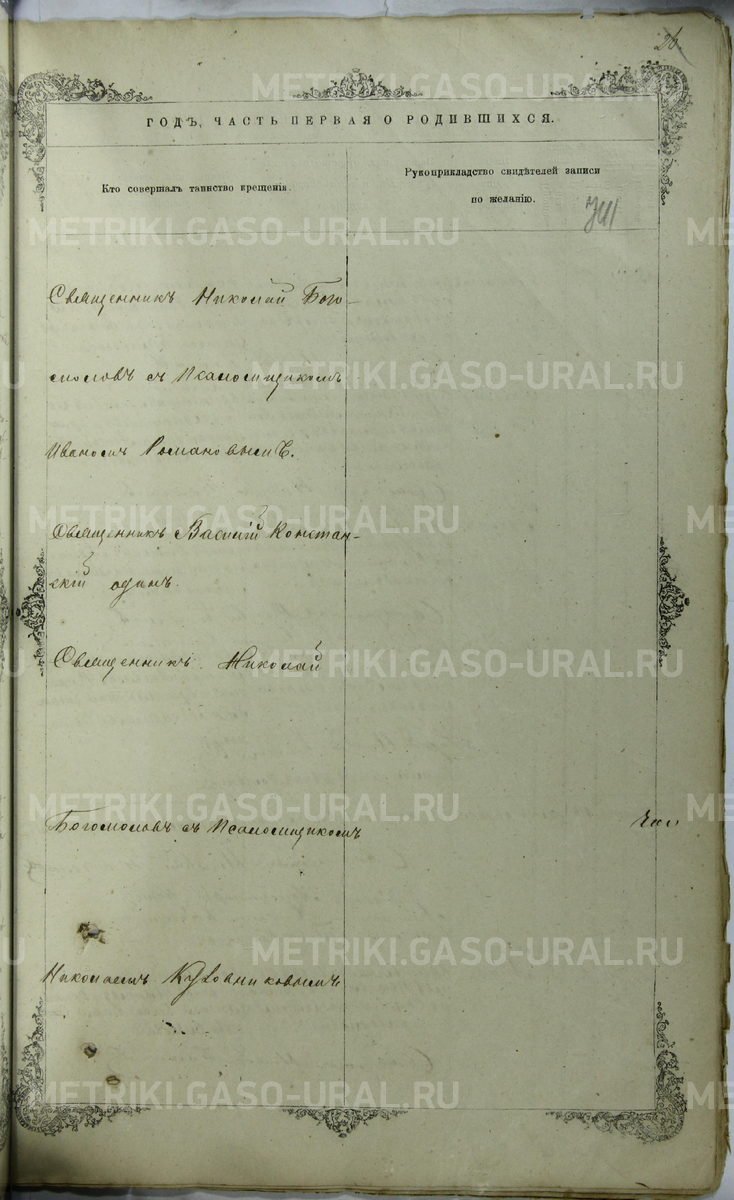 26
ГОДЪ, ЧАСТЬ ПЕРВАЯ О РОДИВШИХСЯ.
Кто совершалъ таинство крещенія.
Рукоприкладство свидѣтелей записи
по желанію.
Священникъ Николай Бого-
моловъ съ Псаломщикомъ
Иваномъ Романовымъ.
Священникъ Василій Констан-
скій одинъ.
Священникъ Николай
Богомоловъ съ Псаломщикомъ
Николаемъ
METRIKI.GASO-URAL.RU